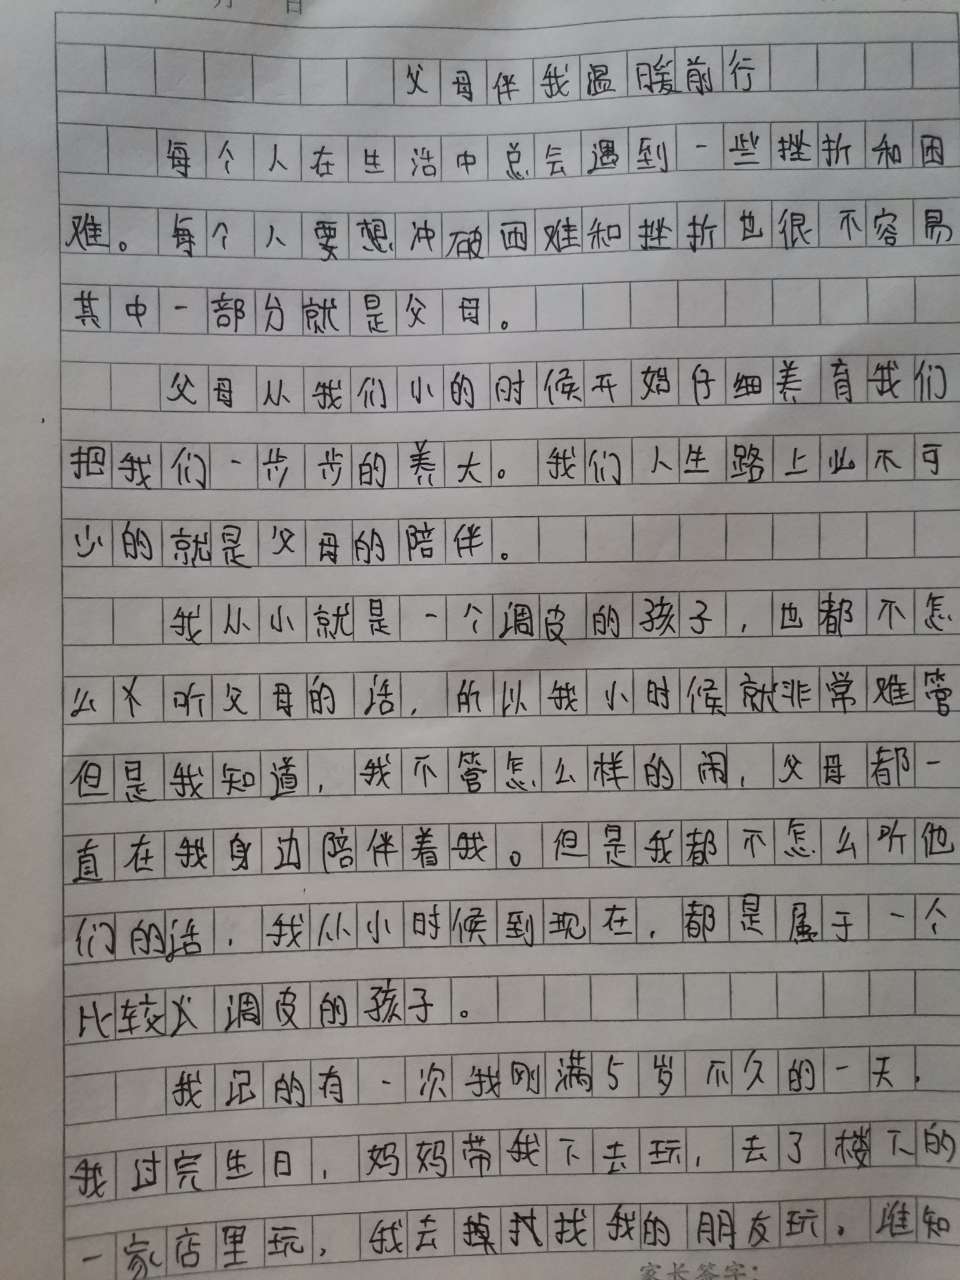 月 日
父母伴我温暖前行
每个人在生活中总会遇到一些挫折和困
难。每个人要想冲破困难和挫折也很不容易
其中一部分就是父母。
父母从我们小的时候开始仔细养育我们
把我们一步步的养大。我们人生路上必不可
少的就是父母的陪伴。
我从小就是一个调皮的孩子，也都不怎
么听父母的话，所以我小时候就非常难管
但是我知道，我不管怎么样的闹，父母都一
直在我身边陪伴着我。但是我都不怎么听他
们的话，我从小时候到现在，都是属于一个
比较调皮的孩子。
我记的有一次我刚满5岁不久的一天，
我过完生日，妈妈带我下去玩，去了楼下的
一家店里玩，我去找我的朋友玩。谁知
家长签字：